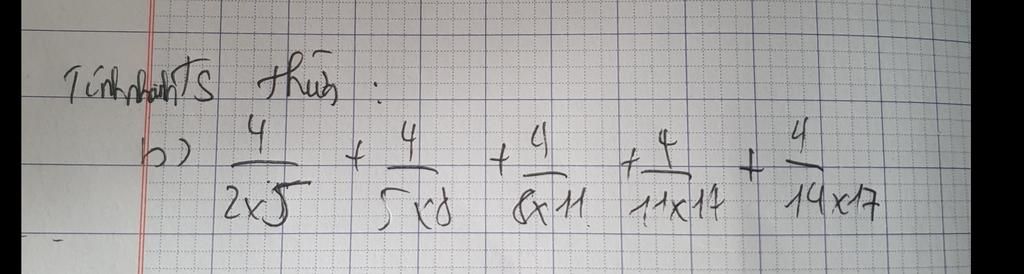 Tính nhanh TS thừa :
b) 4/2x5 + 4/5x8 + 4/8x11 + 4/11x17 + 4/14x17